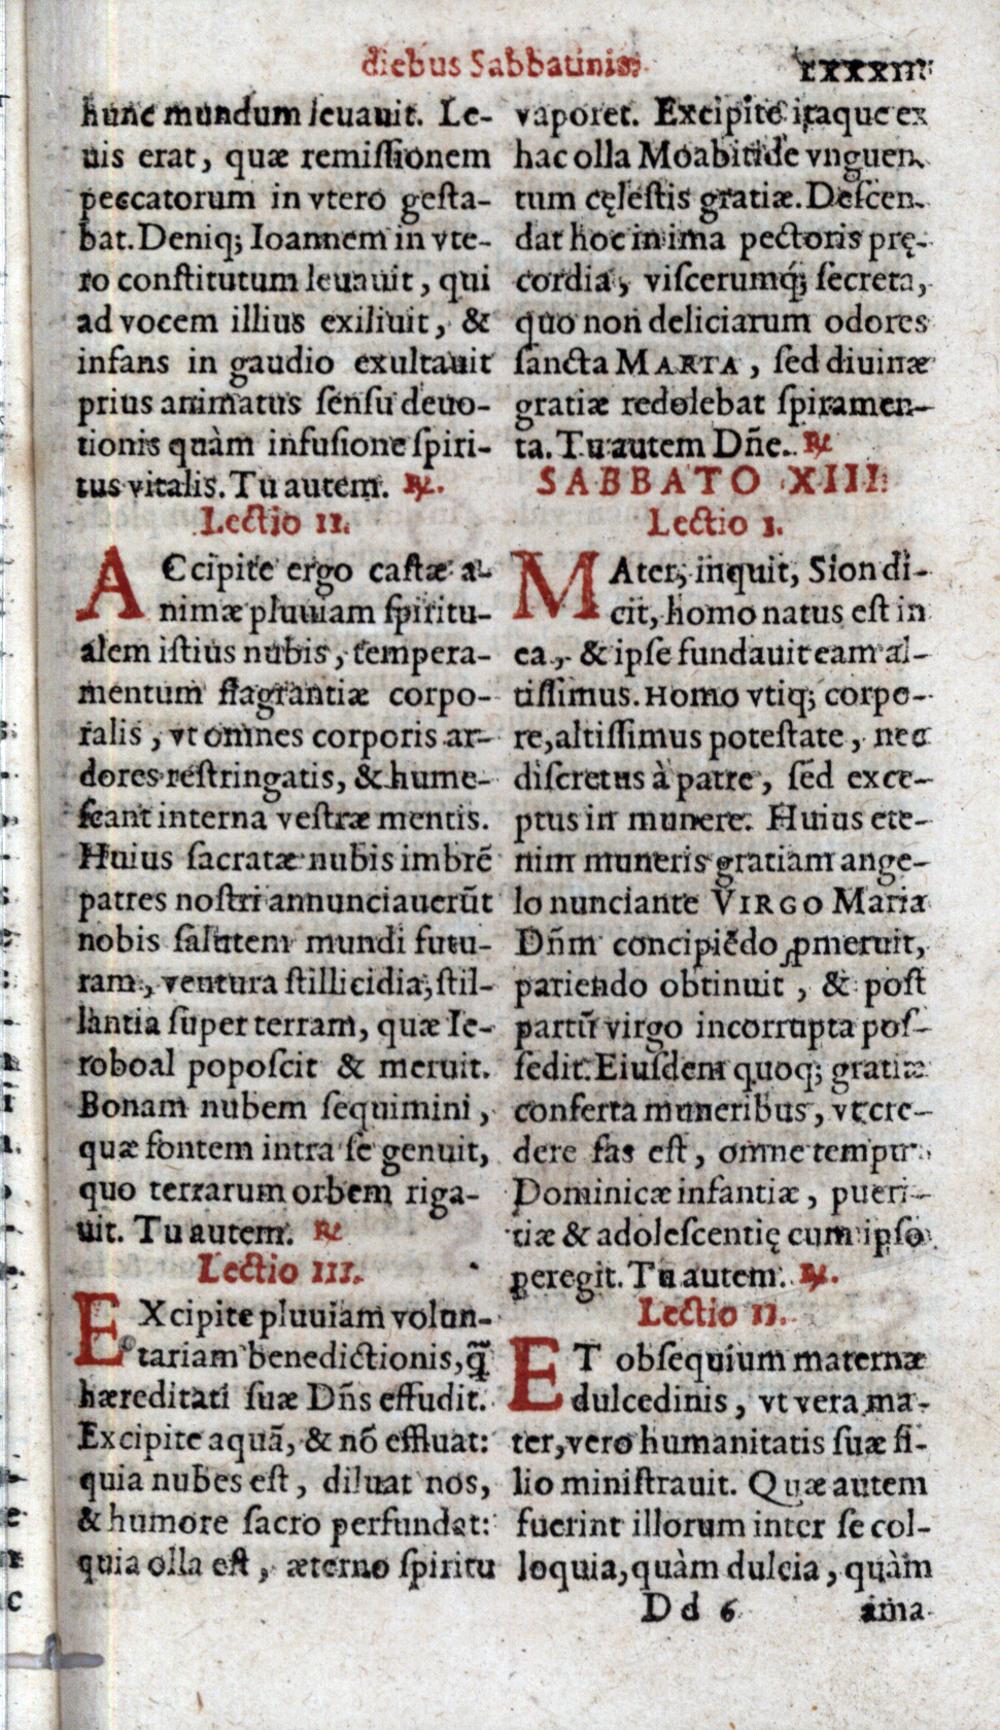 diebus Sabbatinis.
lxxxiii
hunc mundum leuauit. Le-
uis erat, quæ remiſſionem
peccatorum in vtero geſta-
bat. Deniq; Ioannem in vte-
ro conſtitutum leuauit, qui
ad vocem illius exiliuit, &
infans in gaudio exultauit
prius animatus ſenſu deuo-
tionis quàm infuſione ſpiri-
tus vitalis. Tu autem. ℟.
Lectio II.
ACcipite ergo caſtæ a-
nimæ pluuiam ſpiritu-
alem iſtius nubis, tempera-
mentum flagrantiæ corpo-
ralis, vt omnes corporis ar-
dores reſtringatis, & hume-
ſcant interna veſtræ mentis.
Huius ſacratæ nubis imbrē
patres noſtri annunciauerūt
nobis ſalutem mundi futu-
ram, ventura ſtillicidia, ſtil-
lantia ſuper terram, quæ Ie-
roboal popoſcit & meruit.
Bonam nubem ſequimini,
quæ fontem intra ſe genuit,
quo terrarum orbem riga-
uit. Tu autem. ℟
Lectio III.
EXcipite pluuiam volun-
tariam benedictionis, q̃
hæreditati ſuæ Dñs effudit.
Excipite aquā, & nō effluat:
quia nubes eſt, diluat nos,
& humore ſacro perfundat:
quia olla eſt, æterno ſpiritu
vaporet. Excipite itaque ex
hac olla Moabitide vnguen-
tum cęleſtis gratiæ. Deſcen-
dat hoc in ima pectoris prę-
cordia, viſcerumq́; ſecreta,
quo non deliciarum odores
ſancta MARIA, ſed diuinæ
gratiæ redolebat ſpiramen-
ta. Tu autem Dñe. ℟
SABBATO XIII.
Lectio I.
MAter, inquit, Sion di-
cit, homo natus eſt in
ea, & ipſe fundauit eam al-
tiſſimus. Homo vtiq; corpo-
re, altiſſimus poteſtate, nec
diſcretus à patre, ſed exce-
ptus in munere. Huius ete-
nim muneris gratiam ange-
lo nunciante VIRGO Maria
Dñm concipiēdo ꝓmeruit,
pariendo obtinuit, & poſt
partū virgo incorrupta poſ-
ſedit. Eiuſdem quoq; gratiæ
conferta muneribus, vt cre-
dere fas eſt, omne tempus
Dominicæ infantiæ, pueri-
tiæ & adoleſcentię cum ipſo
peregit. Tu autem. ℟.
Lectio II.
ET obſequium maternæ
dulcedinis, vt vera ma-
ter, vero humanitatis ſuæ fi-
lio miniſtrauit. Quæ autem
fuerint illorum inter ſe col-
loquia, quàm dulcia, quàm
Dd 6
ama-